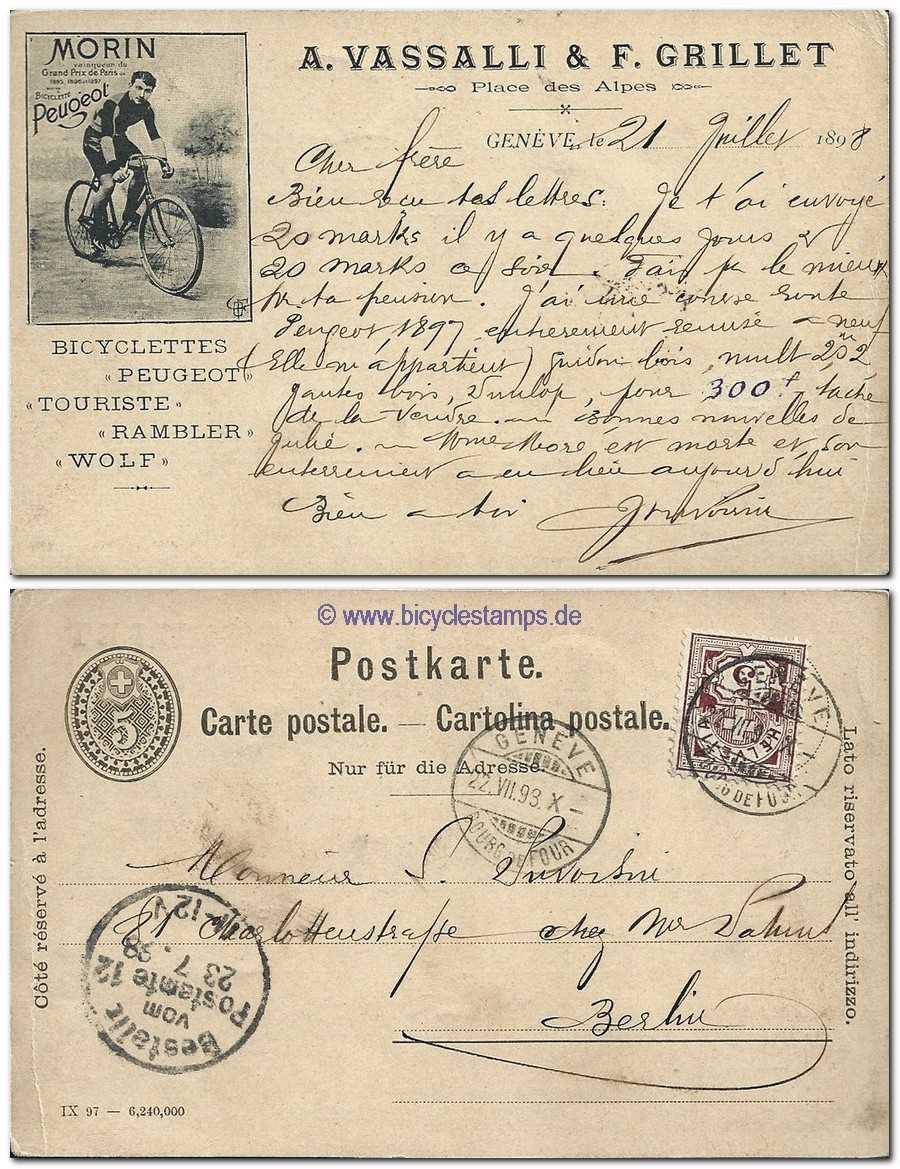 MORIN
vainqueur du
Grand Prix de Paris en
1895, 1896 et 1897
BICYCLETTE
Peugeot
BICYCLETTES
« PEUGEOT »
« TOURISTE »
« RAMBLER »
« WOLF »
A. VASSALLI & F. GRILLET
Place des Alpes
GENÈVE, le 21 Juillet 1898
Cher frère
Bien reçu tes lettres. Je t'ai envoyé
20 marks il y a quelques jours &
20 marks ce soir. Fais pr le mieux
pr ta pension. J'ai une course route
Peugeot 1897 entièrement remise à neuf
(Elle m'appartient) guidon bois, mult
jantes bois, Dunlop, pour 300 f, tâche
de la vendre. Bonnes nouvelles de
Mme est morte et son
enterrement a eu lieu aujourd'hui
Bien à toi
© www.bicyclestamps.de
5
Postkarte.
Carte postale. — Cartolina postale.
Nur für die Adresse.
Côté réservé à l'adresse.
Lato riservato all' indirizzo.
HELVETIA
GENÈVE
GENÈVE
22.VII.98.X
BOURG DE FOUR
Monsieur
81 Charlottenstrasse chez Mr
Berlin
Bestellt
vom
Postamte 12
23 7 .98
11-12 V
IX 97 — 6,240,000